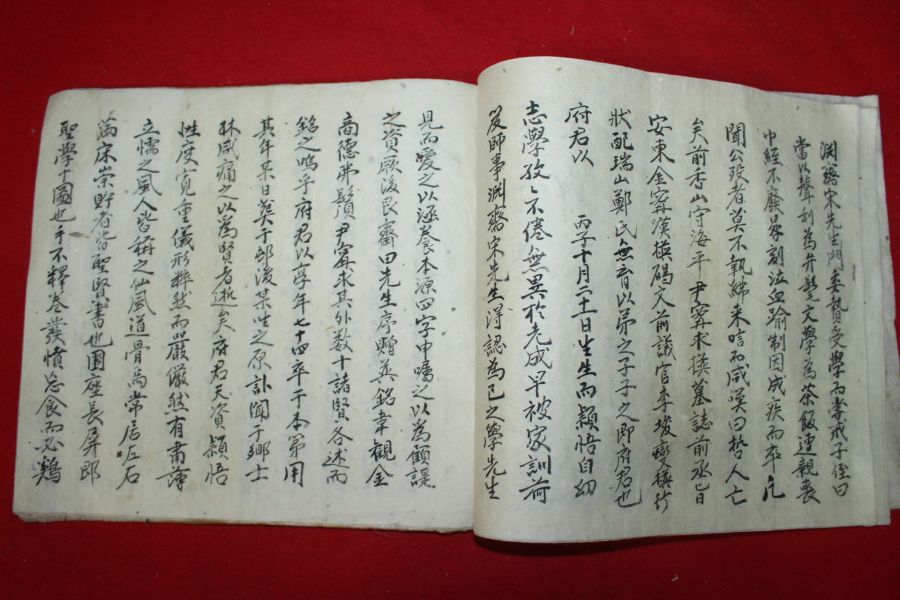 淵齋宋先生門委贄受學而常戒子侄曰
當以聲利為弁髦文學為茶飯遭親喪
中經不廢晷刻泣血踰制因成疾而卒凡
聞公歿者莫不執紼來唁而咸嘆曰哲人亡
矣前香山守海平尹甯求撰墓誌前丞旨
安東金甯漢撰碣文前議官李埈夔撰行
狀配瑞山鄭氏無育以弟之子子之即府君也
府君以 丙子十月二十一日生生而穎悟自幼
志學孜々不倦無異於老成早被家訓荷
笈師事淵齋宋先生得認為己之學先生
見而愛之以涵養本源四字申囑之以為顧諟
之資厥後艮齋田先生序贈奠銘韋觀金
商德弗鬚尹甯求其外数十諸賢各述而
銘之嗚乎府君以享年七十四卒于本第用
其年某日葬于邨後某坐之原訃聞于鄉士
林咸痛之以為賢者逝矣府君天資穎悟
性度寬重儀形粹然而嚴儼然有肅薄
立懦之風人皆稱之仙風道骨焉常居左右
滿床崇貯者皆聖賢書也圍座長屏即
聖學十圖也手不釋卷發憤忘食而必鷄